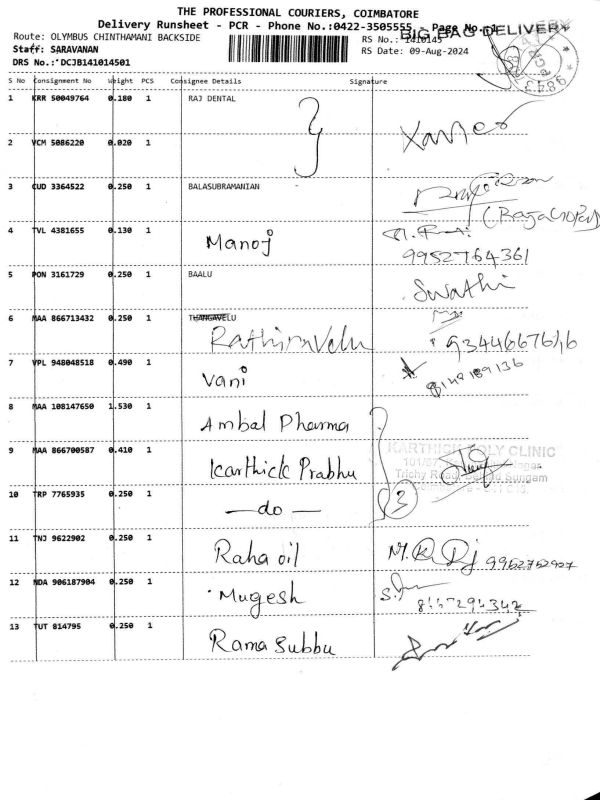 THE PROFESSIONAL COURIERS, COIMBATORE
Delivery Runsheet - PCR - Phone No.:0422-3505555 - Page No. 1
BIG BAG DELIVERY
Route: OLYMBUS CHINTHAMANI BACKSIDE RS No.: 1410145
Staff: SARAVANAN RS Date: 09-Aug-2024
DRS No.: DCJB141014501
S No Consignment No Weight PCS Consignee Details Signature
1 KRR 50049764 0.180 1 RAJ DENTAL
2 VCM 5086220 0.020 1 Xavier
3 CUD 3364522 0.250 1 BALASUBRAMANIAN
4 TVL 4381655 0.130 1 Manoj
9952764361
5 PON 3161729 0.250 1 BAALU Swathi
6 MAA 866713432 0.250 1 THANGAVELU
7 VPL 948048518 0.490 1 Vani
8 MAA 108147650 1.530 1 Ambal Pharma
9 MAA 866700587 0.410 1 Karthick Prabhu
KARTHICK POLY CLINIC
3
10 TRP 7765935 0.250 1 —do—
11 TNJ 9622902 0.250 1 Raha oil
12 NDA 906187904 0.250 1 Mugesh
13 TUT 814795 0.250 1 Rama Subbu